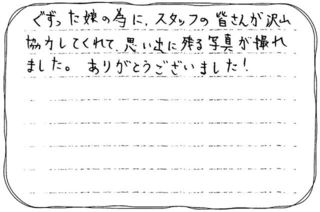 ぐずった娘の為に、スタッフの皆さんが沢山
協力してくれて、思い出に残る写真が撮れ
ました。ありがとうございました!